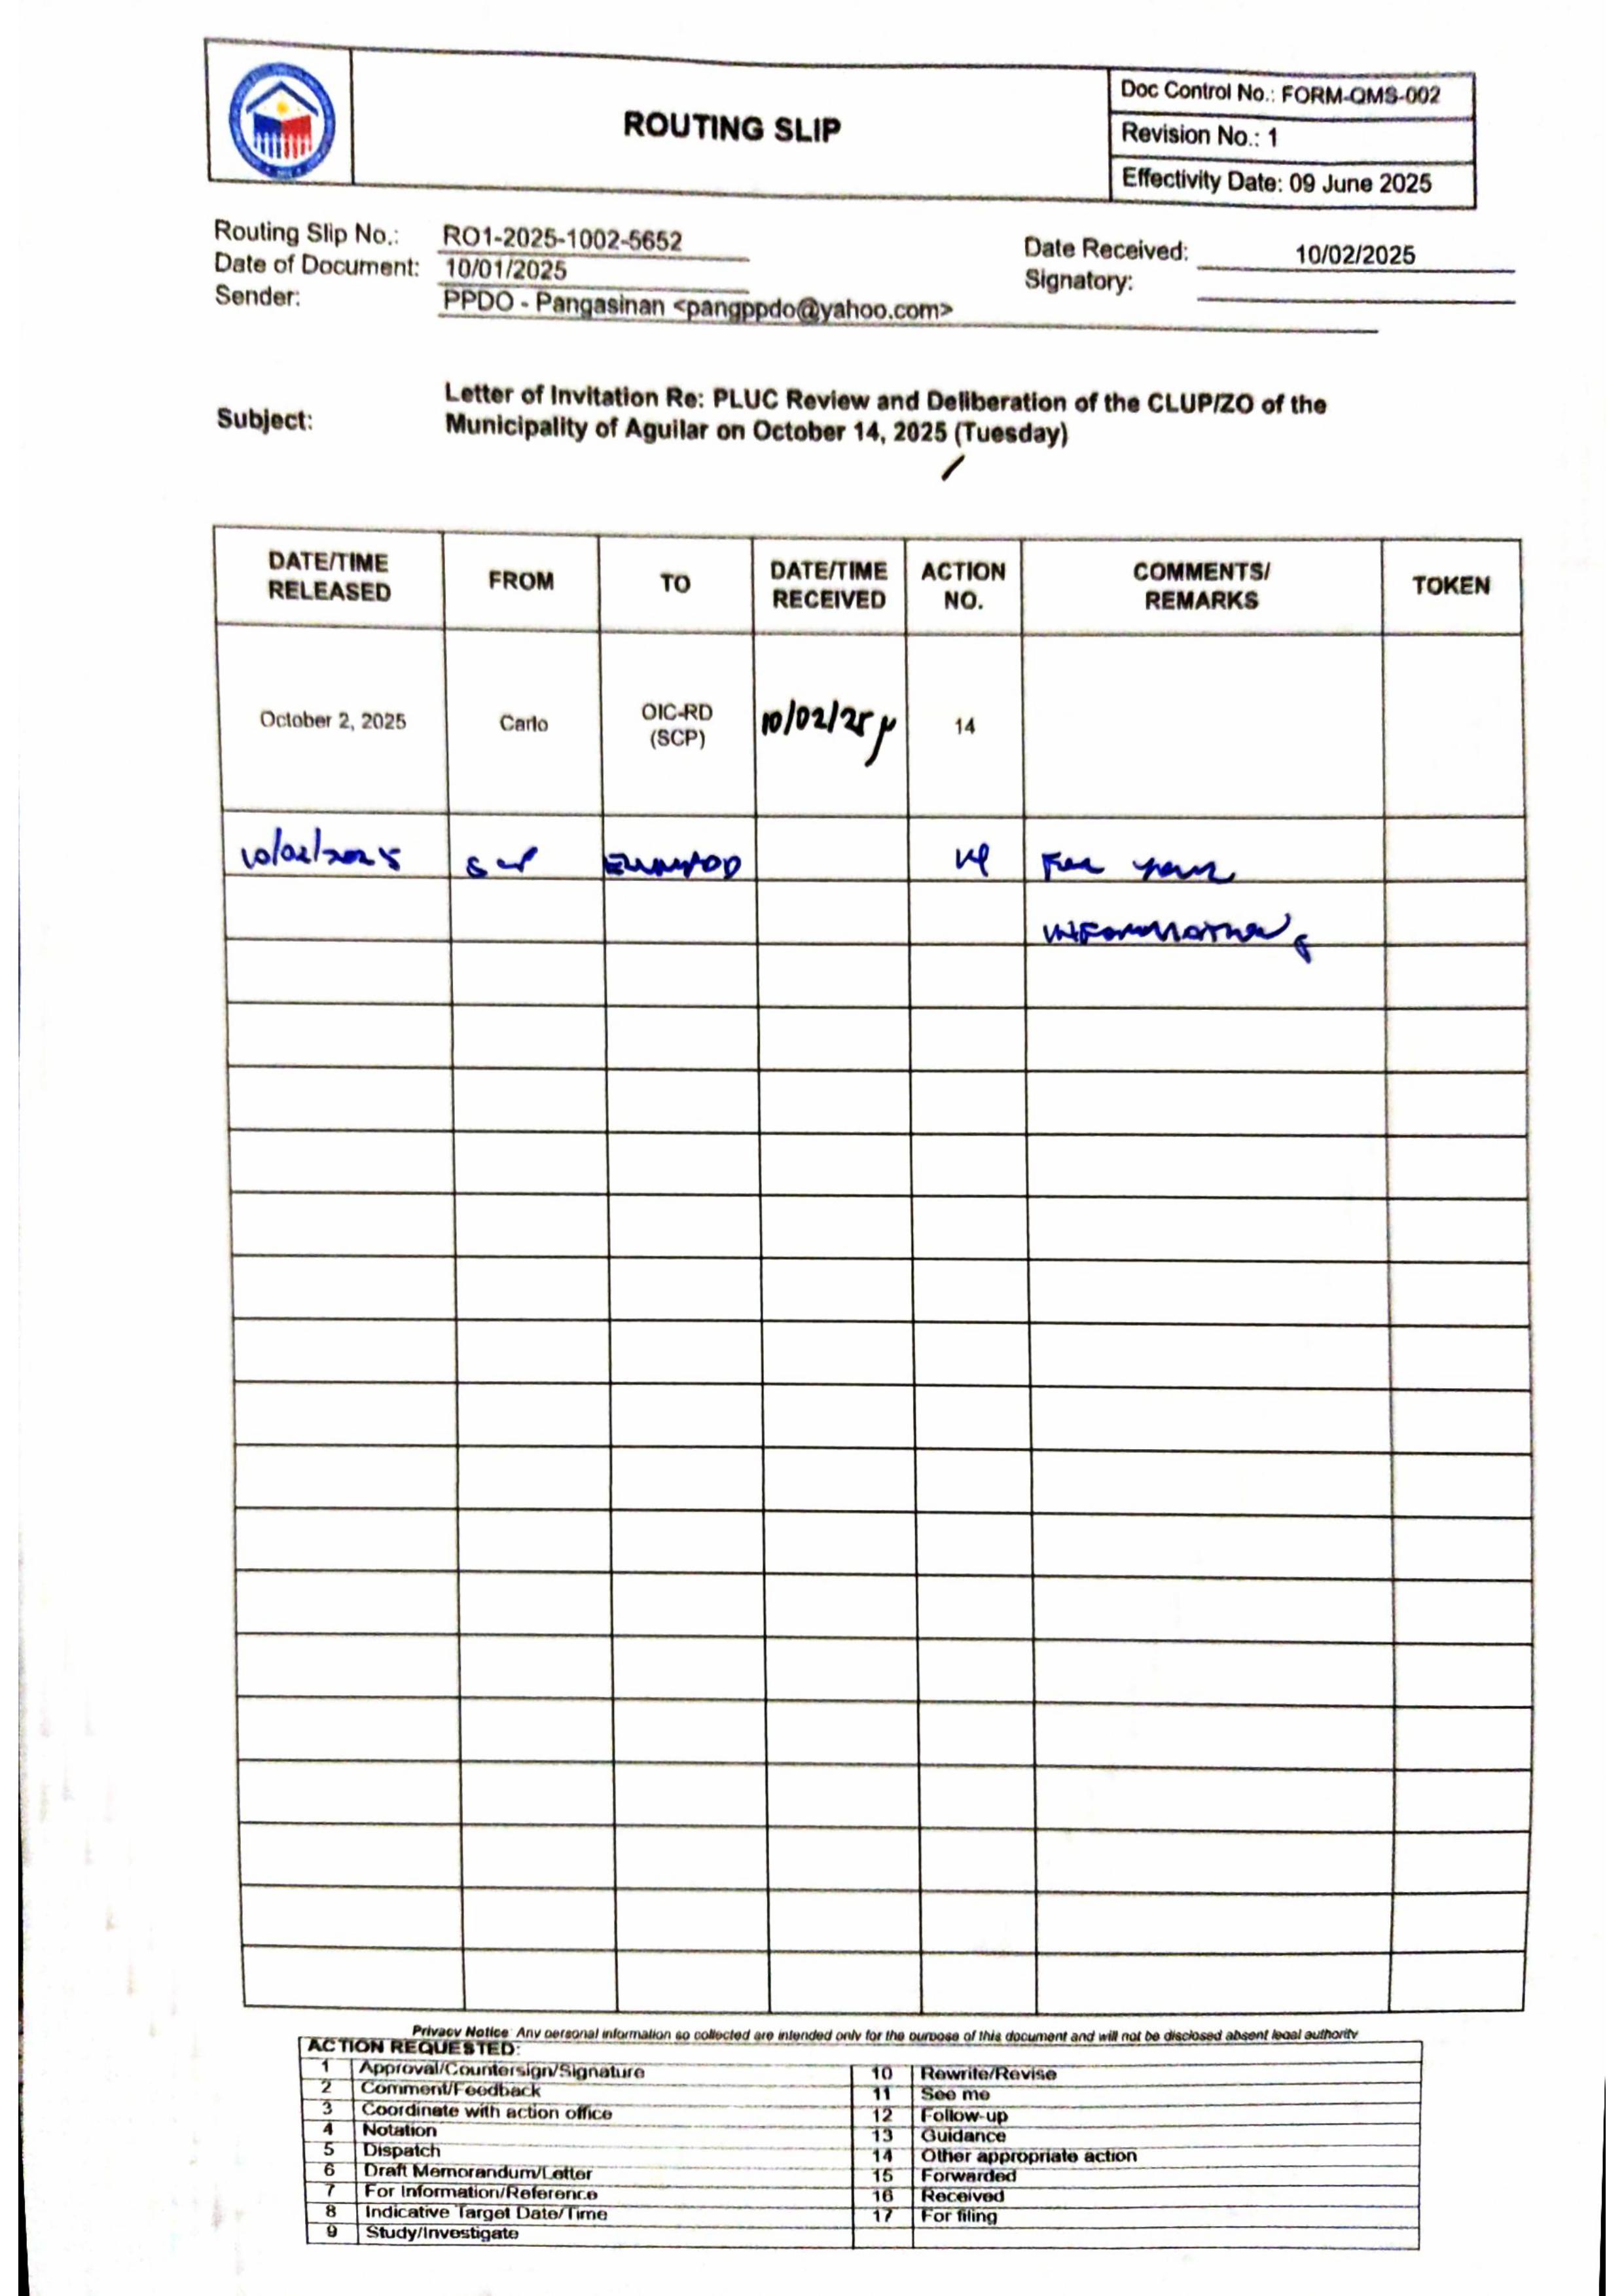 ROUTING SLIP
Doc Control No.: FORM-QMS-002
Revision No.: 1
Effectivity Date: 09 June 2025
Routing Slip No.: RO1-2025-1002-5652
Date of Document: 10/01/2025
Sender: PPDO - Pangasinan <pangppdo@yahoo.com>
Date Received: 10/02/2025
Signatory:
Subject: Letter of Invitation Re: PLUC Review and Deliberation of the CLUP/ZO of the
Municipality of Aguilar on October 14, 2025 (Tuesday)
DATE/TIME RELEASED FROM TO DATE/TIME RECEIVED ACTION NO. COMMENTS/ REMARKS TOKEN
October 2, 2025 Carlo OIC-RD (SCP) 10/02/25 14
10/02/2025 SCP 14 For your
information
Privacy Notice: Any personal information so collected are intended only for the purpose of this document and will not be disclosed absent legal authority
ACTION REQUESTED:
1 Approval/Countersign/Signature 10 Rewrite/Revise
2 Comment/Feedback 11 See me
3 Coordinate with action office 12 Follow-up
4 Notation 13 Guidance
5 Dispatch 14 Other appropriate action
6 Draft Memorandum/Letter 15 Forwarded
7 For Information/Reference 16 Received
8 Indicative Target Date/Time 17 For filing
9 Study/Investigate